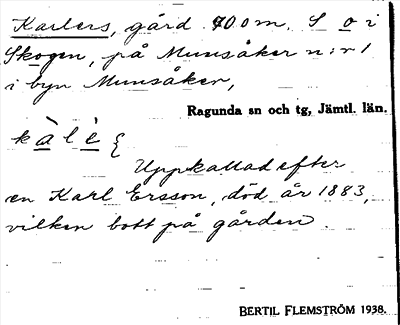 Karlers, gård 400 m. S o i
Skogen, på Munsåker n:r 1
i byn Munsåker,
Ragunda sn och tg, Jämtl. län.
kàlè {
Uppkallad efter
en Karl Ersson, död år 1883,
vilken bott på gården.
BERTIL FLEMSTRÖM 1938.